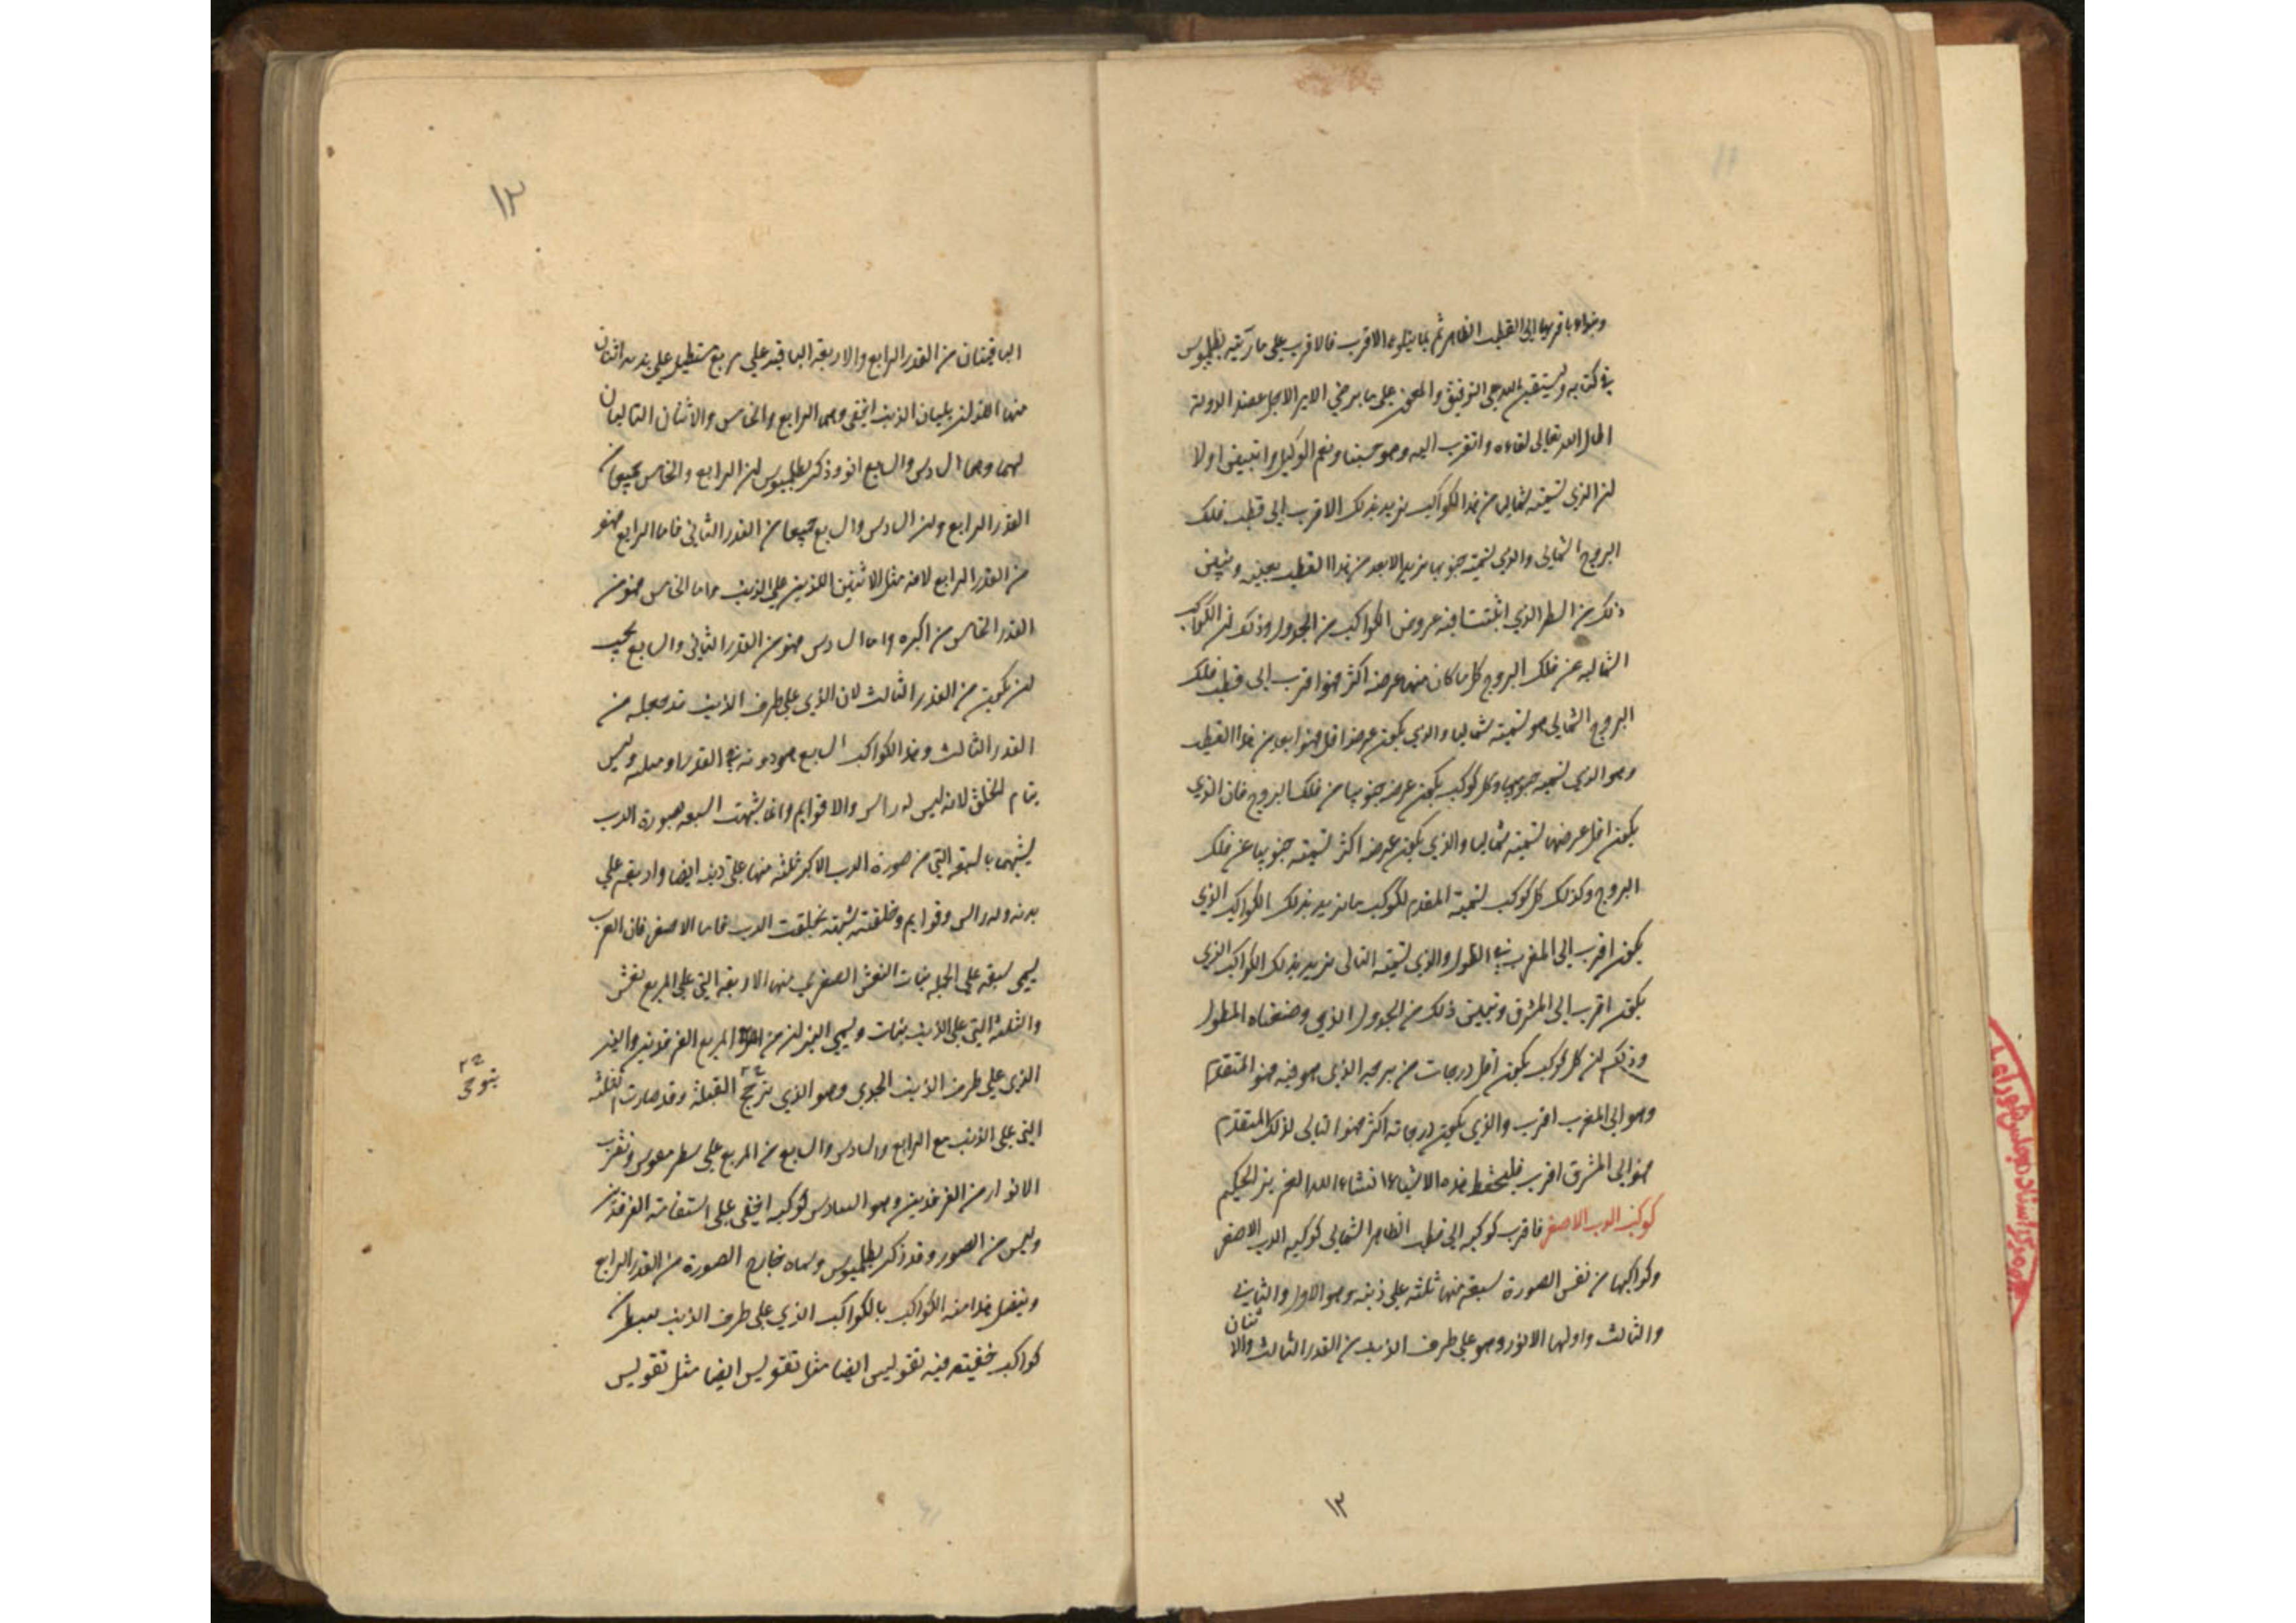 ونبدأ باقربها الى القطب الظاهر ثم بما يتلوه الاقرب فالاقرب على ما رتبه بطلميوس
في كتابه ونستعين بالله على التوفيق والعون على ما يرضي الامير الاجل عضد الدولة
اطال الله تعالى بقاءه واتقرب اليه وهو حسبنا ونعم الوكيل
لن الذي نسميه شماليا من هذا الكواكب نريد بذلك الاقرب الى قطب فلك
البروج الشمالي والذي نسميه جنوبيا نريد الابعد من هذا القطب بعينه ويتبين
ذلك من السطر الذي اثبتنا فيه عروض الكواكب من الجدول وذلك لن الكواكب
الشماليه عن فلك البروج كل ما كان منها عرضه اكثر فهو اقرب الى قطب فلك
البروج الشمالي هو نسميه شماليا والذي يكون عرضه اقل فهو ابعد من هذا القطب
وهو الذي نسميه جنوبيا وكل كوكب يكون عرضه جنوبيا من فلك البروج فان الذي
يكون اقل عرضها نسميه شماليا والذي يكون عرضه اكثر نسميه جنوبيا عن فلك
البروج وكذلك كل كوكب نسميه المقدم لكوكب ما نريد بذلك الكواكب الذي
يكون اقرب الى المغرب في الطول والذي نسميه التالى نريد بذلك الكواكب الذي
يكون اقرب الى المشرق وتبين ذلك من الجدول الذي وضعناه للطول
وذلك لن كل كوكب يكون اقل درجات من برجه الذي هو فيه فهو المتقدم
وهو الى المغرب اقرب والذي يكون درجاته اكثر فهو التالى لذلك المتقدم
فهو الى المشرق اقرب فليحفظ هذه الاشياء انشاء الله العزيز الحكيم
كوكب الدب الاصغر فاقرب كوكبه الى قطب الظاهر الشمالى كوكبه الدب الاصغر
وكواكبها من نفس الصورة سبعة منها ثلثه على ذنبه وهو الاول والثاني
والثالث واولها الانور وهو على طرف الذنب من القدر الثالث والا ثنان
١٣
١٣
الباقيتان من القدر الرابع والاربعة الباقيه على مربع مستطيل على بدنه اثنان
منها اللذان يليان الذنب اخفى وهما الرابع والخامس والاثنان التاليان
لهما وهما السادس والسابع انور وذكر بطلميوس لن الرابع والخامس جميعا من
القدر الرابع ولن السادس والسابع جميعا من القدر الثاني فاما الرابع فهو
من القدر الرابع لانه مثل الاثنين اللذين على الذنب واما الخامس فهو من
القدر الخامس من اكبره واما السادس فهو من القدر الثاني والسابع يجب
لن يكون من القدر الثالث لان الذي على طرف الذنب قد جعله من
القدر الثالث وهذا الكواكب السابع هو دونه في القدر او مثله وليس
بتام الخلق لانه ليس له راس والا قوايم وانما شبهت السبعه بصورة الدب
لشبهها بالسبعة التي من صورة الدب الاكبر ثلثه منها على ذنبه ايضا واربعة على
بدنه وله راس وقوايم وخلقته شبيه بخلقت الدب فاما الاصغر فان العرب
يسمى سبعة على الجملة بنات النعش الصغرى منها الاربعة التي على المربع نعش
والثلثة التي على الذنب بنات ويسمى النيرين من المربع الفرقدين والنير
الذي على طرف الذنب الجدي وهو الذي يترجح القبلة وقد صارت الثلثه
يتوخى
التي على الذنب مع الرابع والسادس والسابع من المربع على سطر مقوس وبقرب
الانوار من الفرقدين وهو السادس كوكب اخفى على استقامة الفرقدين
وليس من الصور وقد ذكر بطلميوس وسماه خارج الصورة من القدر الرابع
ويتصل هذا الكواكب بالكواكب الذي على طرف الذنب بسطر من
كواكب خفيته فيه تقويس ايضا مثل تقويس ايضا مثل تقويس